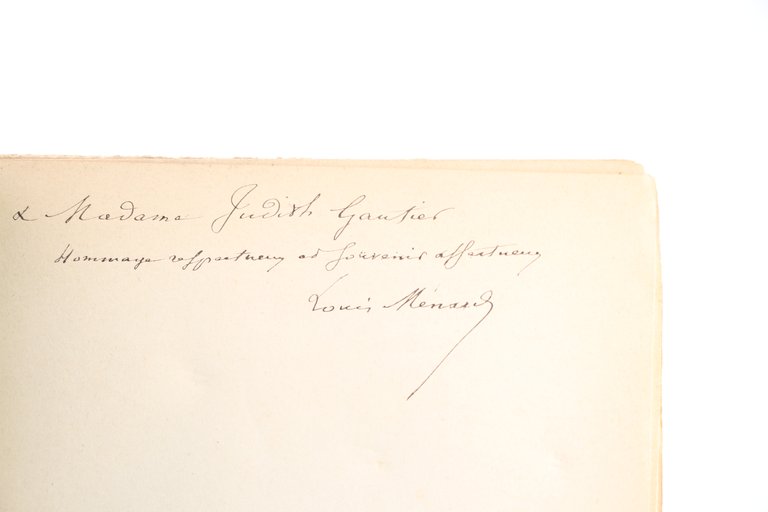 à Madame Judith Gautier
Hommage respectueux et souvenir affectueux
Louis Ménard